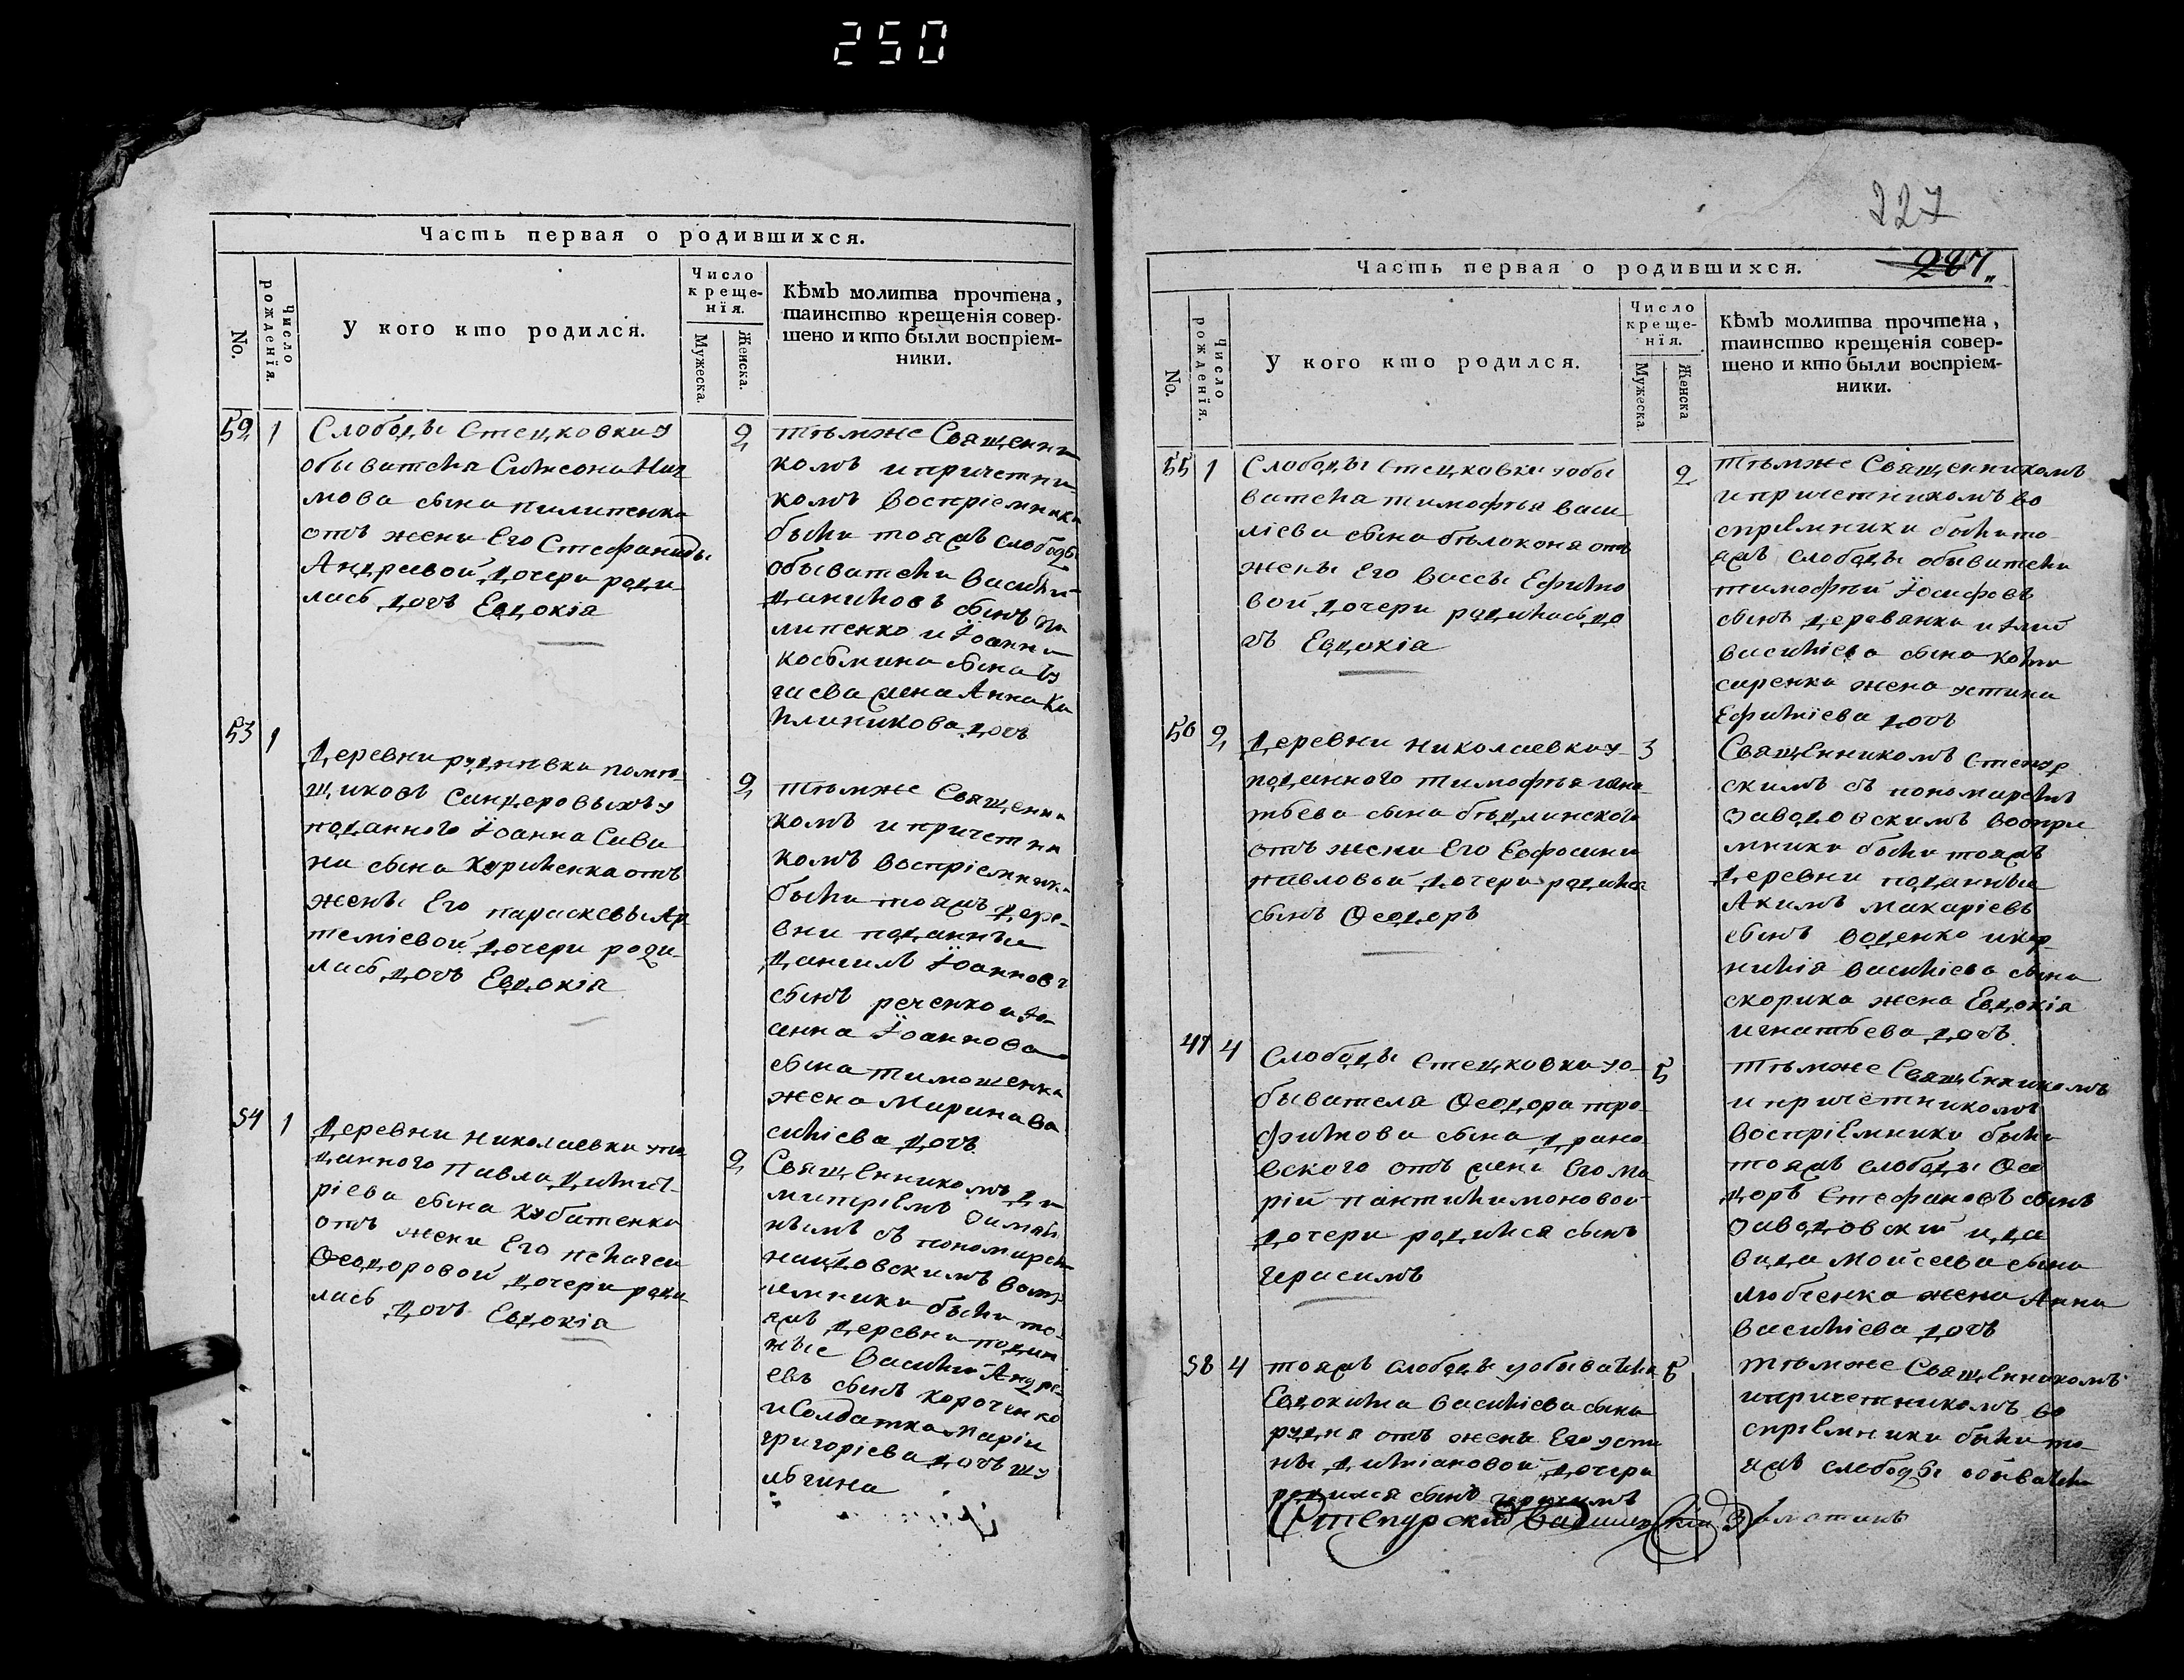 250
Часть первая о родившихся.
No.
Число рожденїя.
У кого кто родился.
Число
креще-
нїя.
Мужеска.
Женска.
Кѣмъ молитва прочтена,
таинство крещенія совер-
шено и кто были воспріем-
ники.
52 1 2
Слободы Стецковки у
обывателя Симеона
мова сына пилипенка
отъ жени Его Стефаниды
Андреевой дочери роди
лась дочь Евдокіа
тѣмже Священни
комъ и причетни
комъ воспріемники
были тояжъ слободы
обыватели Василій
даниловъ сынъ пи
липенко и Іоанна
косьмина сына
жена Анна
дочь
53 1 2
Деревни рудневки помѣ
щиковъ у
поданного Іоанна Сави
на сына Куриленка отъ
жены Его параскевы Ар
темїевой дочери роди
лась дочь Евдокіа
тѣмже Священни
комъ и причетни
комъ воспріемники
были тояжъ дере
вни поданные
даниилъ Іоанновъ
сынъ реченко и Іо
анна Іоаннова
сына тимошенка
жена Марина ва
силіева дочь
54 1 2
Деревни николаевки у по
данного Павла Димит
ріева сына Кубатенка
отъ жени Его пелагеи
Ѳеодоровой дочери роди
лась дочь Евдокіа
Священникомъ ди
митріемъ
нымъ съ пономарем

емники были то
яжъ деревни подан
ные Василій Андре
евъ сынъ короченко
и Солдатка марія
григоріева дочь шу
льгина
227
287
Часть первая о родившихся.
No.
Число рожденїя.
У кого кто родился.
Число
креще-
нїя.
Мужеска.
Женска
Кѣмъ молитва прочтена,
таинство крещенія совер-
шено и кто были воспріем-
ники.
55 1 2
Слободы стецковки у обы
вателя тимофѣя васи
ліева сына бѣлоконя отъ
жены Его Вассы Ефимо
вой дочери родилась до
чь Евдокіа
тѣмже Священникомъ
и причетникомъ во
спріемники были то
яжъ слободы обыватели
тимофѣй Іосифовъ
сынъ деревянко и
василіева сына
сиренка жена устина
Ефиміева дочь
56 2 3
Деревни николаевки у
поданного тимофѣя игна
тьева сына бѣдлинского
отъ жени Его Евфосини
павловой дочери родился
сынъ Ѳеодоръ
Священникомъ Степур
скимъ съ пономаремъ
Заводовскимъ воспри
мники были тояжъ
деревни поданные
Акимъ макаріевъ
сынъ воденко и кор
нилія василіева сына
скорика жена Евдокія
игнатьева дочь
47 4 5
Слободы стецковки у о
бывателя Ѳеодора тро
фимова сына драно
вского отъ жени Его ма
ріи пантилимоновой
дочери родился сынъ
герасимъ
тѣмже Священникомъ
и причетникомъ
воспріемники были
тояжъ слободы Ѳео
доръ Стефановъ сынъ
Заводовскій и да
вида Мойсеева сына
любченка жена Анна
василіева дочь
58 4 5
тояжъ слободы у обывателя
Евдокима василіева сына
рудня отъ жены Его усти
ны диміановой дочери
родился сынъ герасимъ
тѣмже Священникомъ
и причетникомъ во
спріемники были то
яжъ слободы обыватели
Степурскій